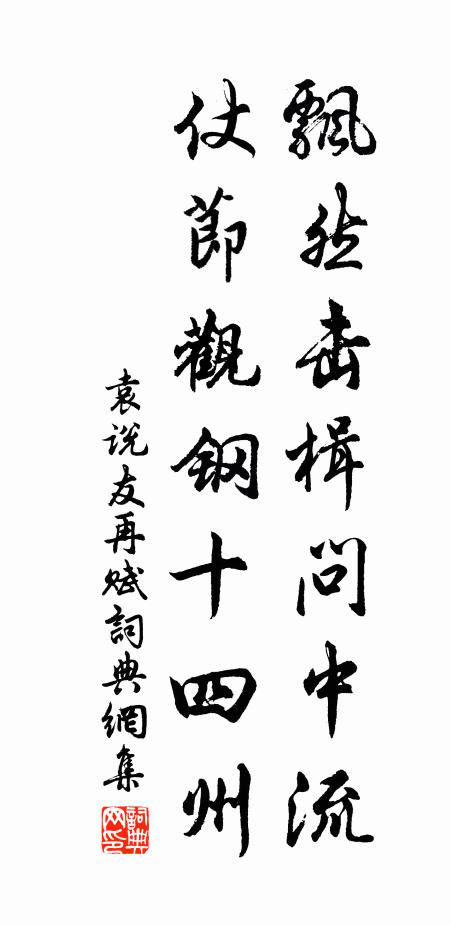 飄然击楫問中流
仗莭觀鋼十四州
袁说友再赋詞典網集
詞典网印